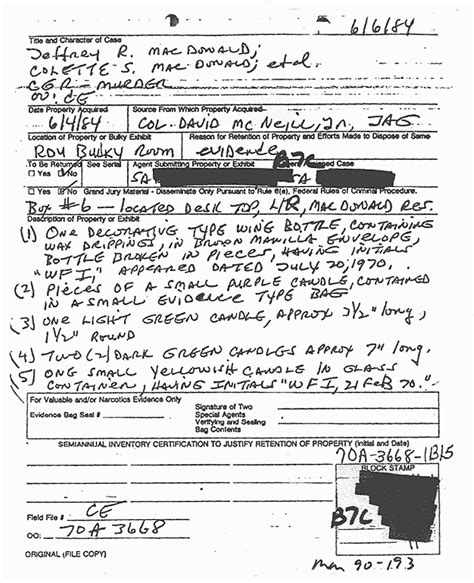 6/6/84
Title and Character of Case
Jeffrey R. MacDonald;
Colette S. MacDonald; et al.
CGR - MURDER
OO: CE
Date Property Acquired Source From Which Property Acquired
6/4/84 Col. David McNeill, Jr., JAG
Location of Property or Bulky Exhibit Reason for Retention of Property and Efforts Made to Dispose of Same
Roy Bulky Room evidence
B7C
To Be Returned See Serial Agent Submitting Property or Exhibit Agent Assigned Case
Yes No SA SA
Yes No Grand Jury Material - Disseminate Only Pursuant to Rule 6(e), Federal Rules of Criminal Procedure.
Box #6 - located Desk Top, L/R, MacDonald Res.
Description of Property or Exhibit
(1) One decorative type wine bottle, containing
wax drippings, in brown manilla envelope,
bottle broken in pieces, having initials
"WFI," appeared dated July 20, 1970.
(2) Pieces of a small purple candle, contained
in a small evidence type bag
(3) One light green candle, approx 3 1/2" long,
1 1/2" round
(4) Two (2) dark green candles approx 7" long.
(5) One small yellowish candle in glass
container, having initials "WFI, 21 Feb 70."
For Valuable and/or Narcotics Evidence Only
Evidence Bag Seal # Signature of Two
Special Agents
Verifying and Sealing
Bag Contents
SEMIANNUAL INVENTORY CERTIFICATION TO JUSTIFY RETENTION OF PROPERTY (Initial and Date)
70A-3668-1B15
BLOCK STAMP
B7C
Field File # CE
OO: 70A 3668
ORIGINAL (FILE COPY)
90-193